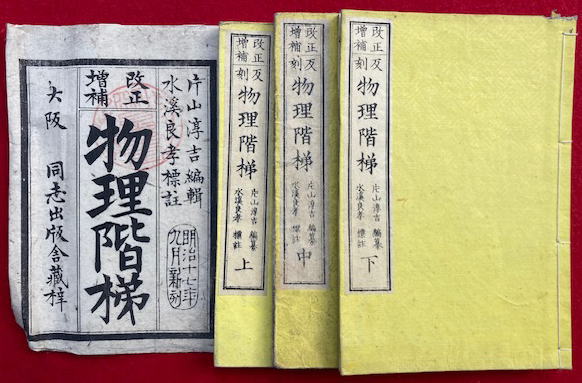 改正反
増補刻
物理階梯
片山淳吉 編纂
水溪良孝 標註
下
改正反
増補刻
物理階梯
片山淳吉 編纂
水溪良孝 標註
中
改正反
増補刻
物理階梯
片山淳吉 編纂
水溪良孝 標註
上
片山淳吉編輯
水溪良孝標註
明治十七年
九月新刻
改正
増補
物理階梯
大阪 同志出版舎藏梓